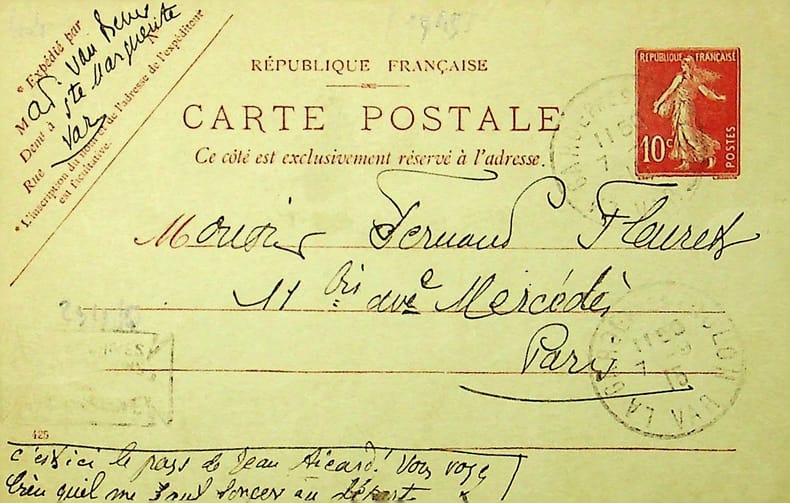 * Expédié par
M ad. Van Bever
N°
Demt à Ste Marguerite
Rue Var
* L'inscription du nom et de l'adresse de l'expéditeur
est facultative.
RÉPUBLIQUE FRANÇAISE
CARTE POSTALE
Ce côté est exclusivement réservé à l'adresse.
RÉPUBLIQUE FRANÇAISE
10 c
POSTES
11
7
Monsieur Fernand Fleuret
11 bis ave Mercédès
Paris
LA GARDE
11
7
425
c'est ici le pays de Jean Aicard! Vous voyez
bien qu'il me faut songer au départ